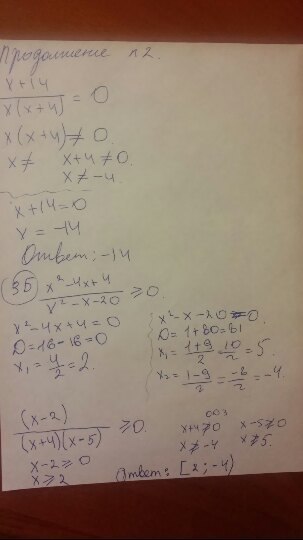 Продолжение №2.
x+14 / x(x+4) = 0
x(x+4) ≠ 0.
x ≠    x+4 ≠ 0.
x ≠ -4.
x+14=0
x = -14
Ответ: -14
35 x²-4x+4 / x²-x-20 ≥ 0.
x²-4x+4=0
D=16-16=0
x₁ = 4/2 = 2.
x²-x-20=0.
D=1+80=81
x₁ = 1+9/2 = 10/2 = 5.
x₂ = 1-9/2 = -8/2 = -4.
(x-2) / (x+4)(x-5) ≥ 0.
x-2 ≥ 0
x ≥ 2
ООЗ
x+4 ≠ 0    x-5 ≠ 0
x ≠ -4    x ≠ 5.
Ответ: [2; -4)